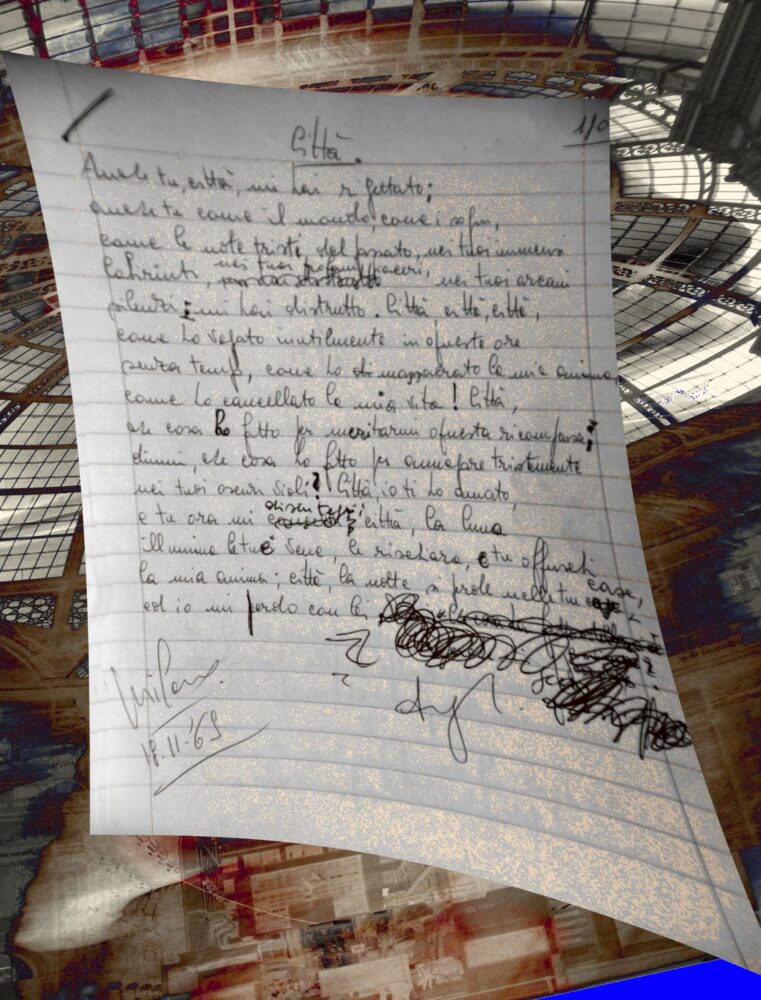 110
Città.
Anche tu, città, mi hai rigettato;
anche tu come il mondo, come i sogni,
come le note tristi del passato, nei tuoi immensi
labirinti, nei tuoi profondi piaceri, nei tuoi arcani
silenzi; mi hai distrutto. Città città, città,
come ho vagato inutilmente in queste ore
senza tempo, come ho la mia anima
come ho cancellato la mia vita! Città,
che cosa ho fatto per meritarmi questa ricompensa;
dimmi, che cosa ho fatto per annegare tristemente
nei tuoi oscuri viali? Città, io ti ho amato,
e tu ora mi città, la luna
illumina le tue vene, le rischiara, e tu offuschi
la mia anima; città, la notte si perde nelle tue case,
ed io mi perdo con lei
Milano
18.11.'69